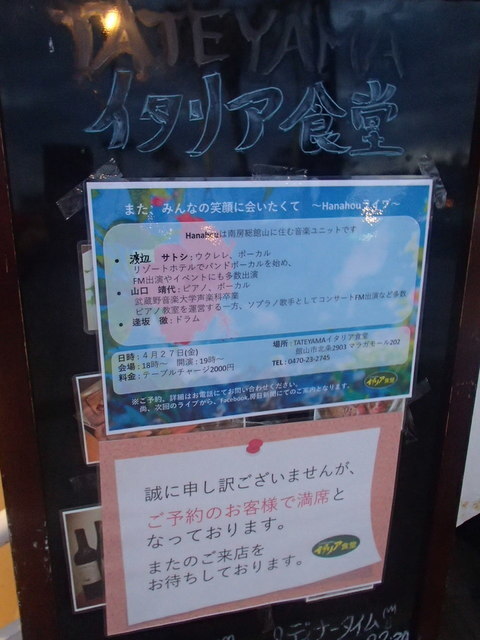 TATEYAMA
イタリア食堂
また、みんなの笑顔に会いたくて ～Hanahouライブ～
Hanahouは南房総館山に住む音楽ユニットです
• 渡辺 サトシ：ウクレレ、ボーカル
リゾートホテルでバンドボーカルを始め、
FM出演やイベントにも多数出演
• 山口 靖代：ピアノ、ボーカル
武蔵野音楽大学声楽科卒業
ピアノ教室を運営する一方、ソプラノ歌手としてコンサートFM出演など多数
• 逢坂 徹：ドラム
日時：4月27日(金)
会場：18時～ 開演：19時～
料金：テーブルチャージ2000円
場所：TATEYAMAイタリア食堂
館山市北条2903 マラガモール202
TEL：0470-23-2745
※ご予約、詳細はお電話にてお問い合わせください。
尚、次回のライブから、Facebook,房日新聞にてのご案内となります。
イタリア食堂
誠に申し訳ございませんが、
ご予約のお客様で満席と
なっております。
またのご来店を
お待ちしております。
イタリア食堂
ディナータイム